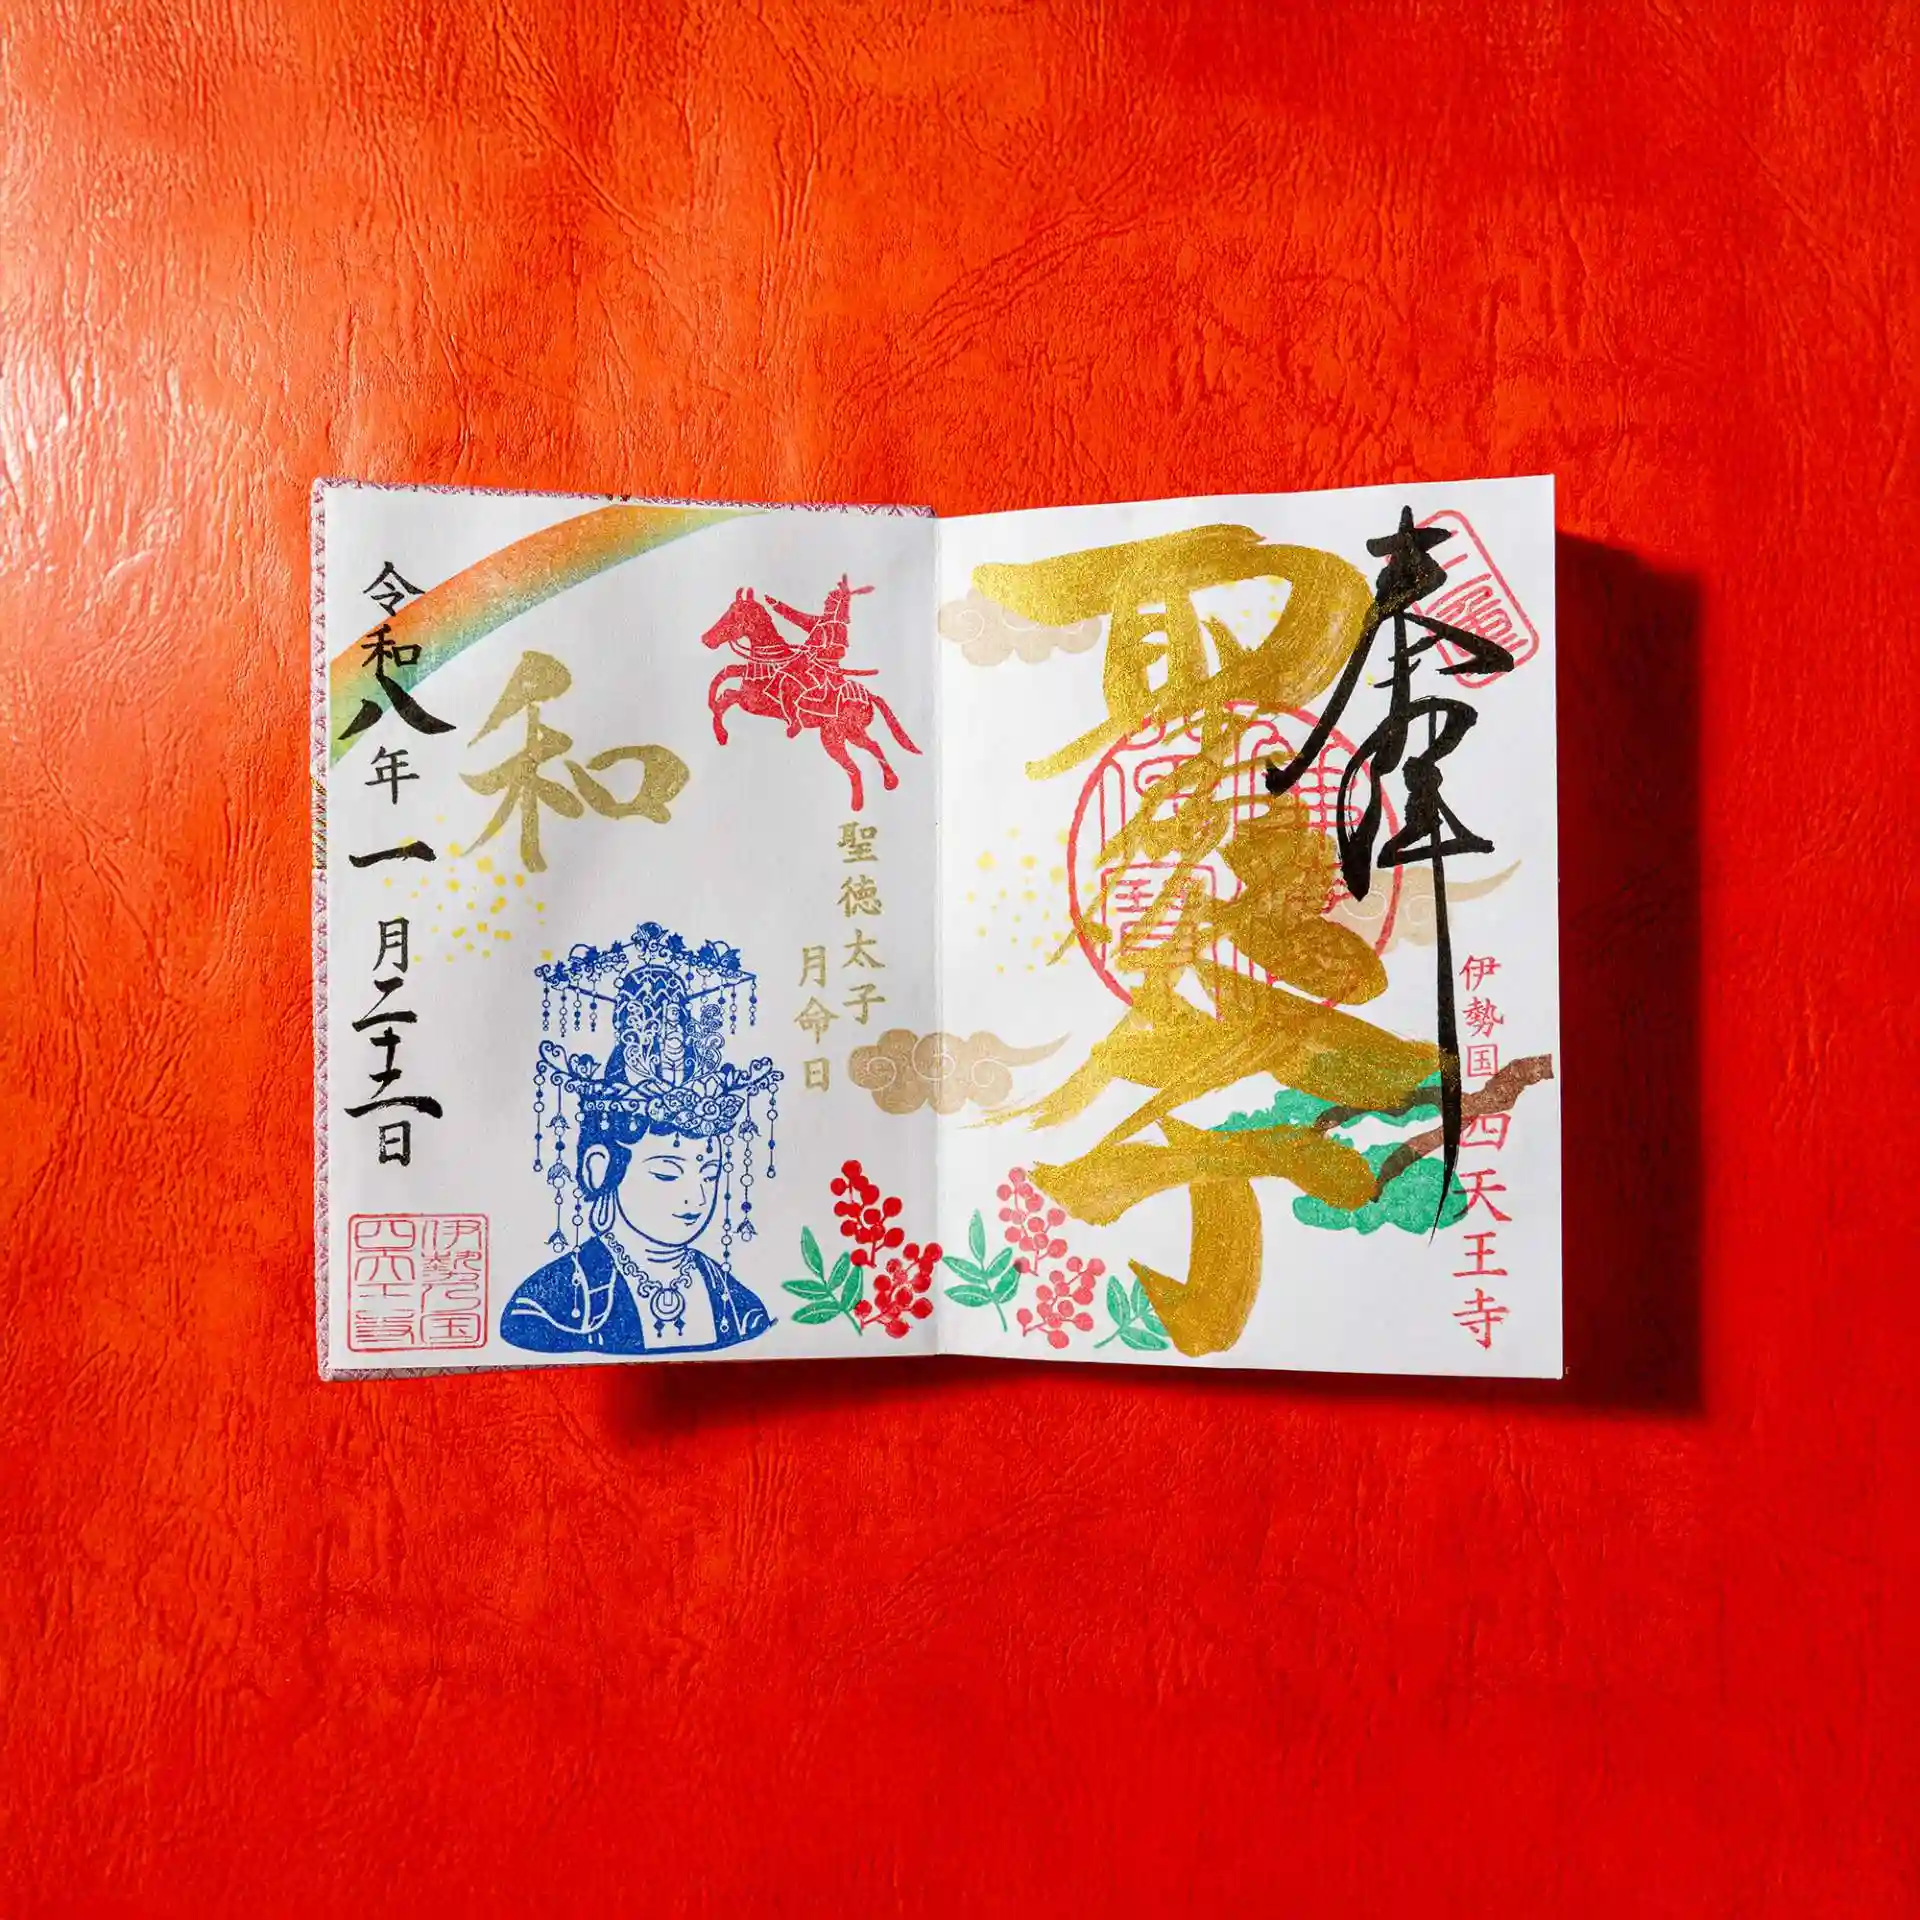 奉拝
聖徳太子
伊勢国 四天王寺
聖徳太子
月命日
和
令和八年一月二十二日
伊勢国
四天王寺